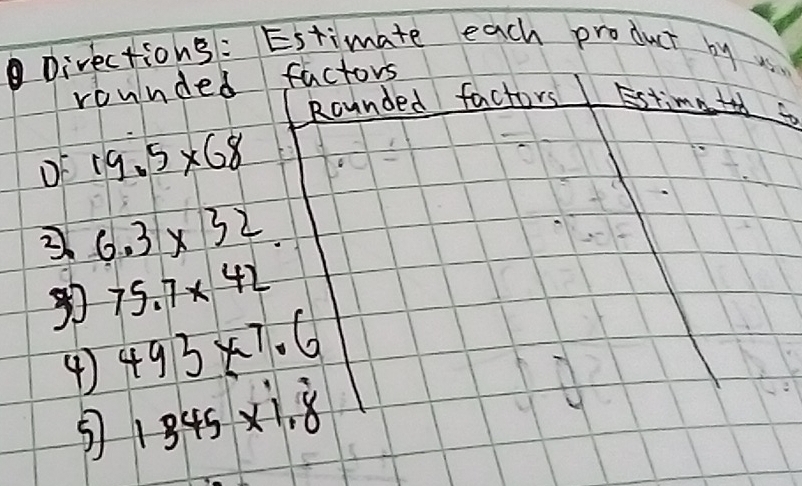 Directions: Estimate each product by
rounded factors
Rounded factors Estimated
1) 19.5 x 68
2) 6.3 x 32
3) 75.7 x 42
4) 493 x 7.6
5) 1845 x 1.8